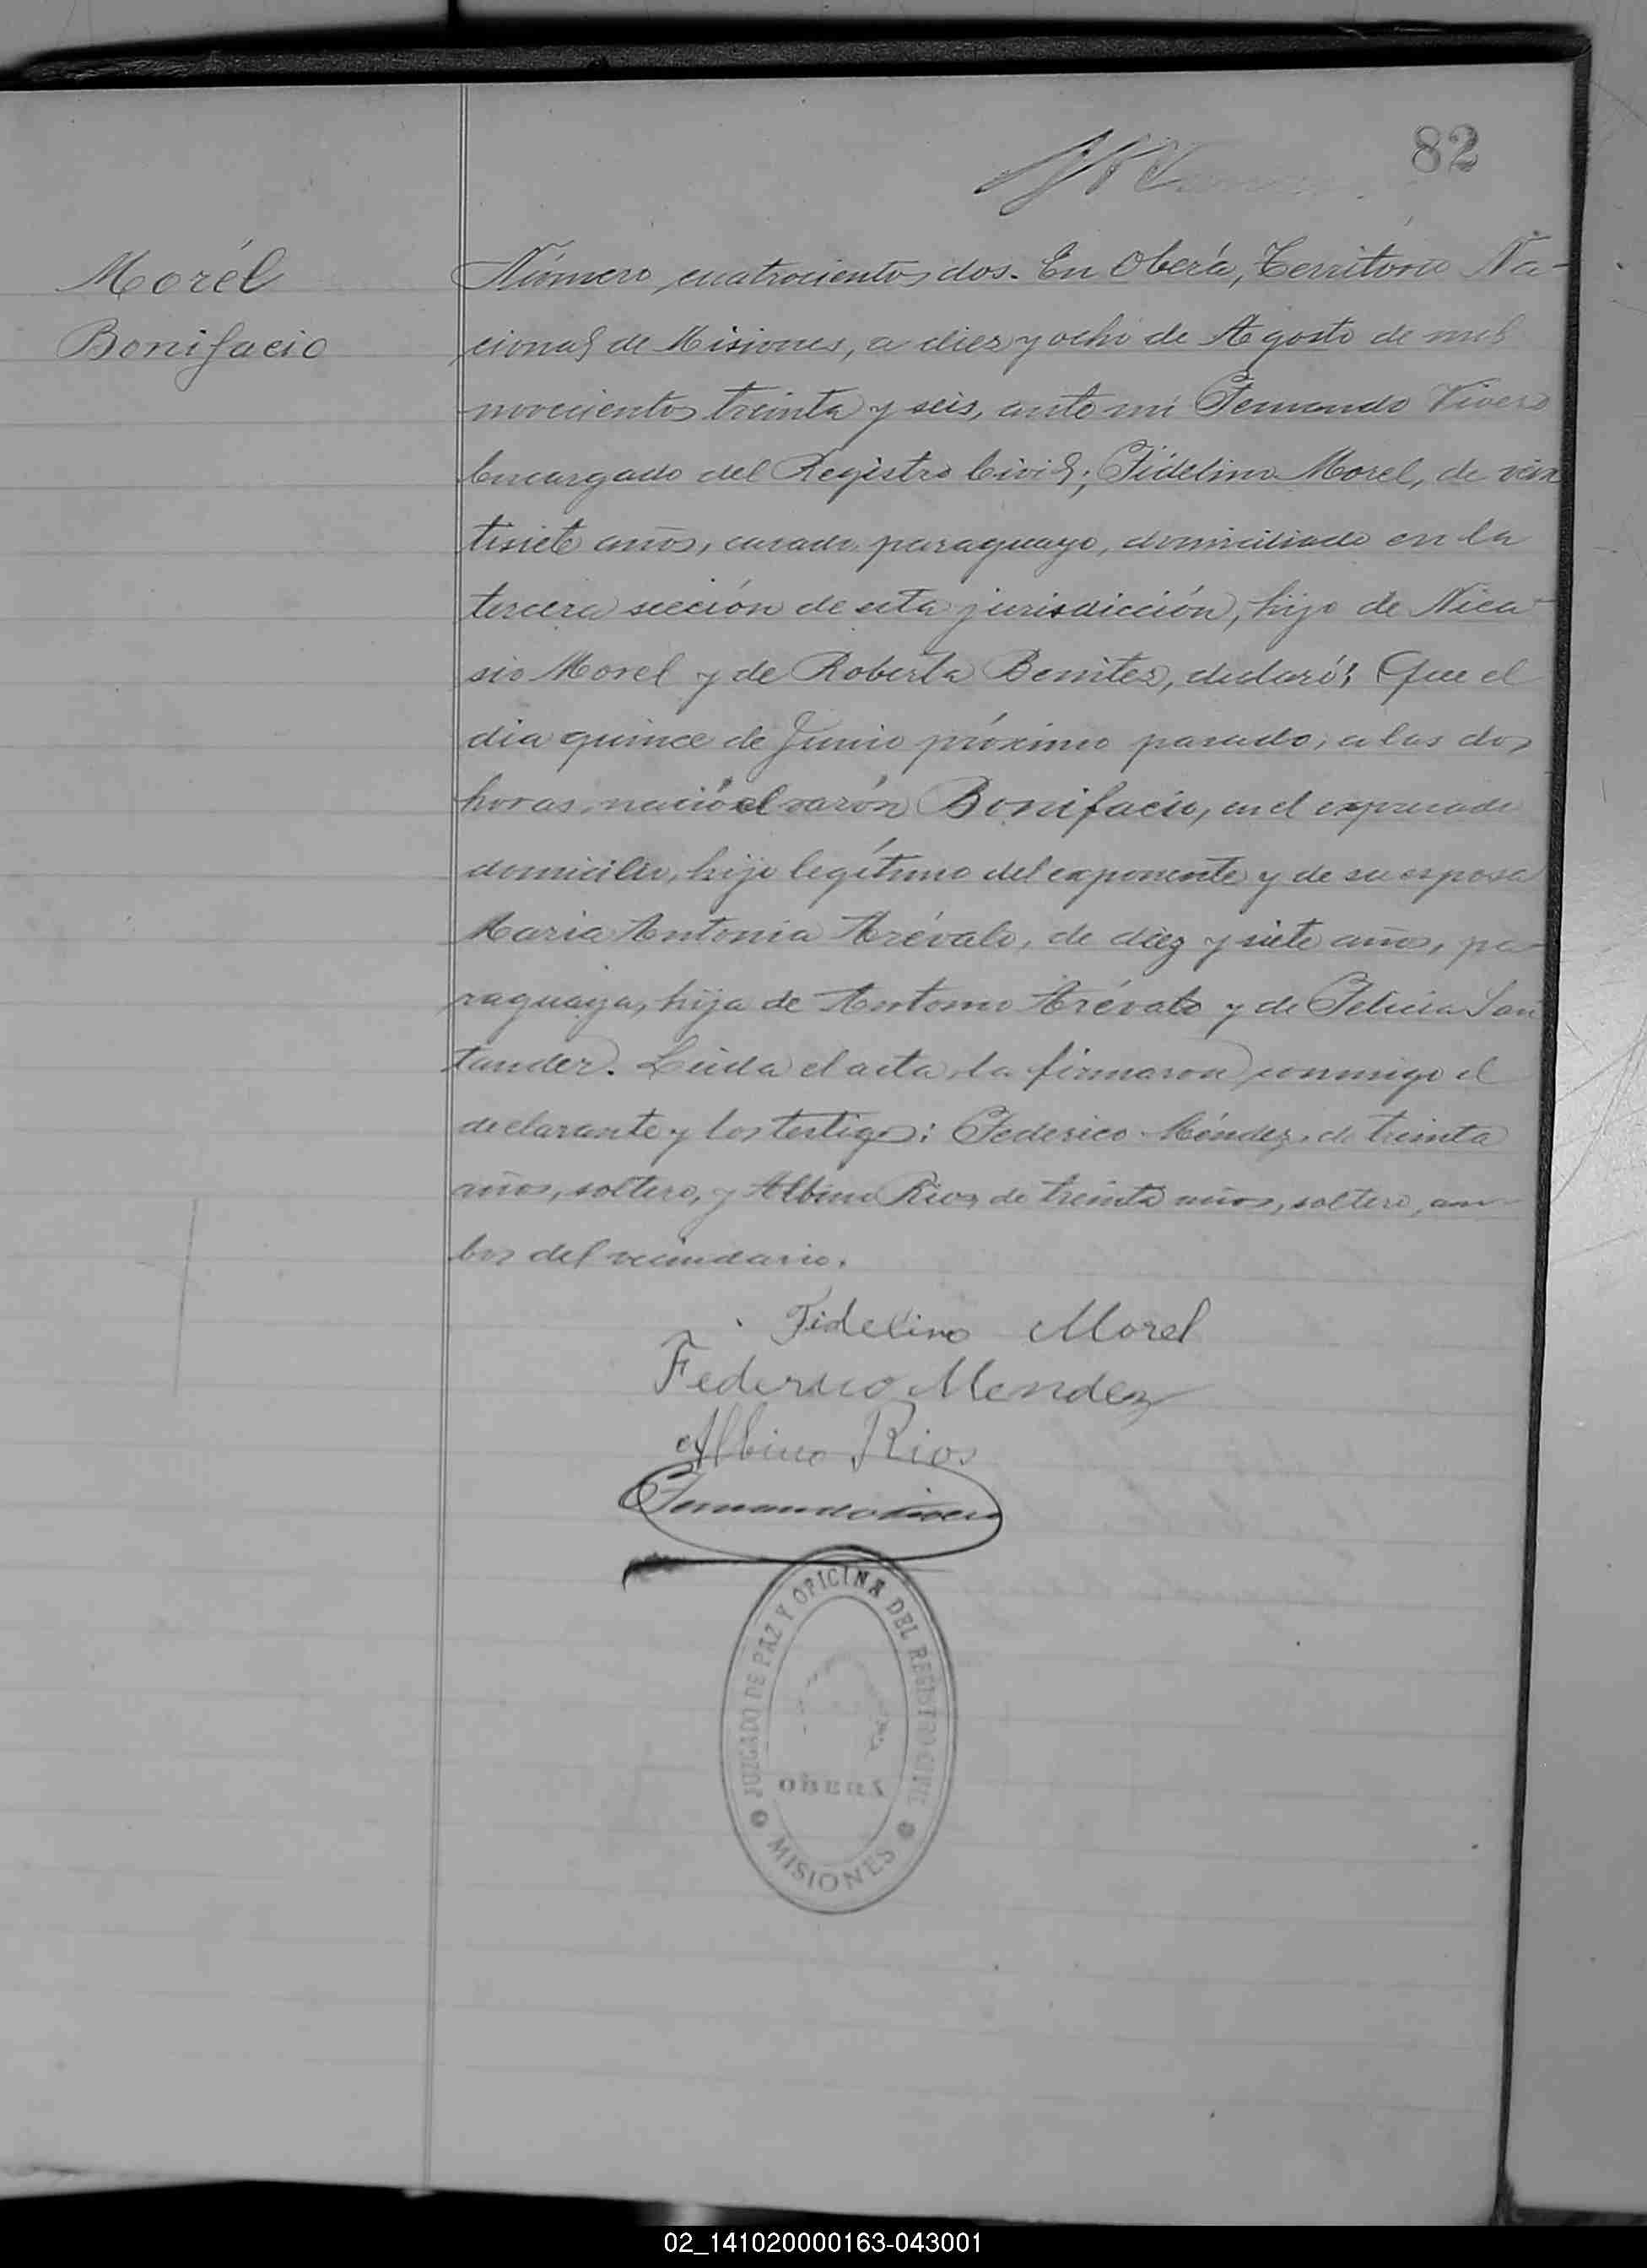 82
Morél
Bonifacio
Número cuatrocientos dos. En Oberá, Territorio Na-
cional de Misiones, a diez y ocho de Agosto de mil
novecientos treinta y seis, ante mí Fernando Vivero
Encargado del Registro Civil; Fidelino Morel, de vein
tisiete años, casado, paraguayo, domiciliado en la
tercera sección de esta jurisdicción, hijo de Nica-
sio Morel y de Roberta Benitez, declaró: Que el
dia quince de Junio próximo pasado, a las dos
horas, nació el varón Bonifacio, en el expresado
domicilio, hijo legítimo del exponente y de su esposa
Maria Antonia Arévalo, de diez y siete años, pa-
raguaya, hija de Antonio Arévalo y de Felicia San
tander. Leida el acta, la firmaron conmigo el
declarante y los testigos: Federico Méndez, de treinta
años, soltero, y Albino Rios, de treinta años, soltero, am-
bos del vecindario.
Fidelino Morel
Federico Mendez
Albino Rios
Fernando Vivero
JUZGADO DE PAZ Y OFICINA DEL REGISTRO CIVIL
OBERÁ
MISIONES
02_141020000163-043001